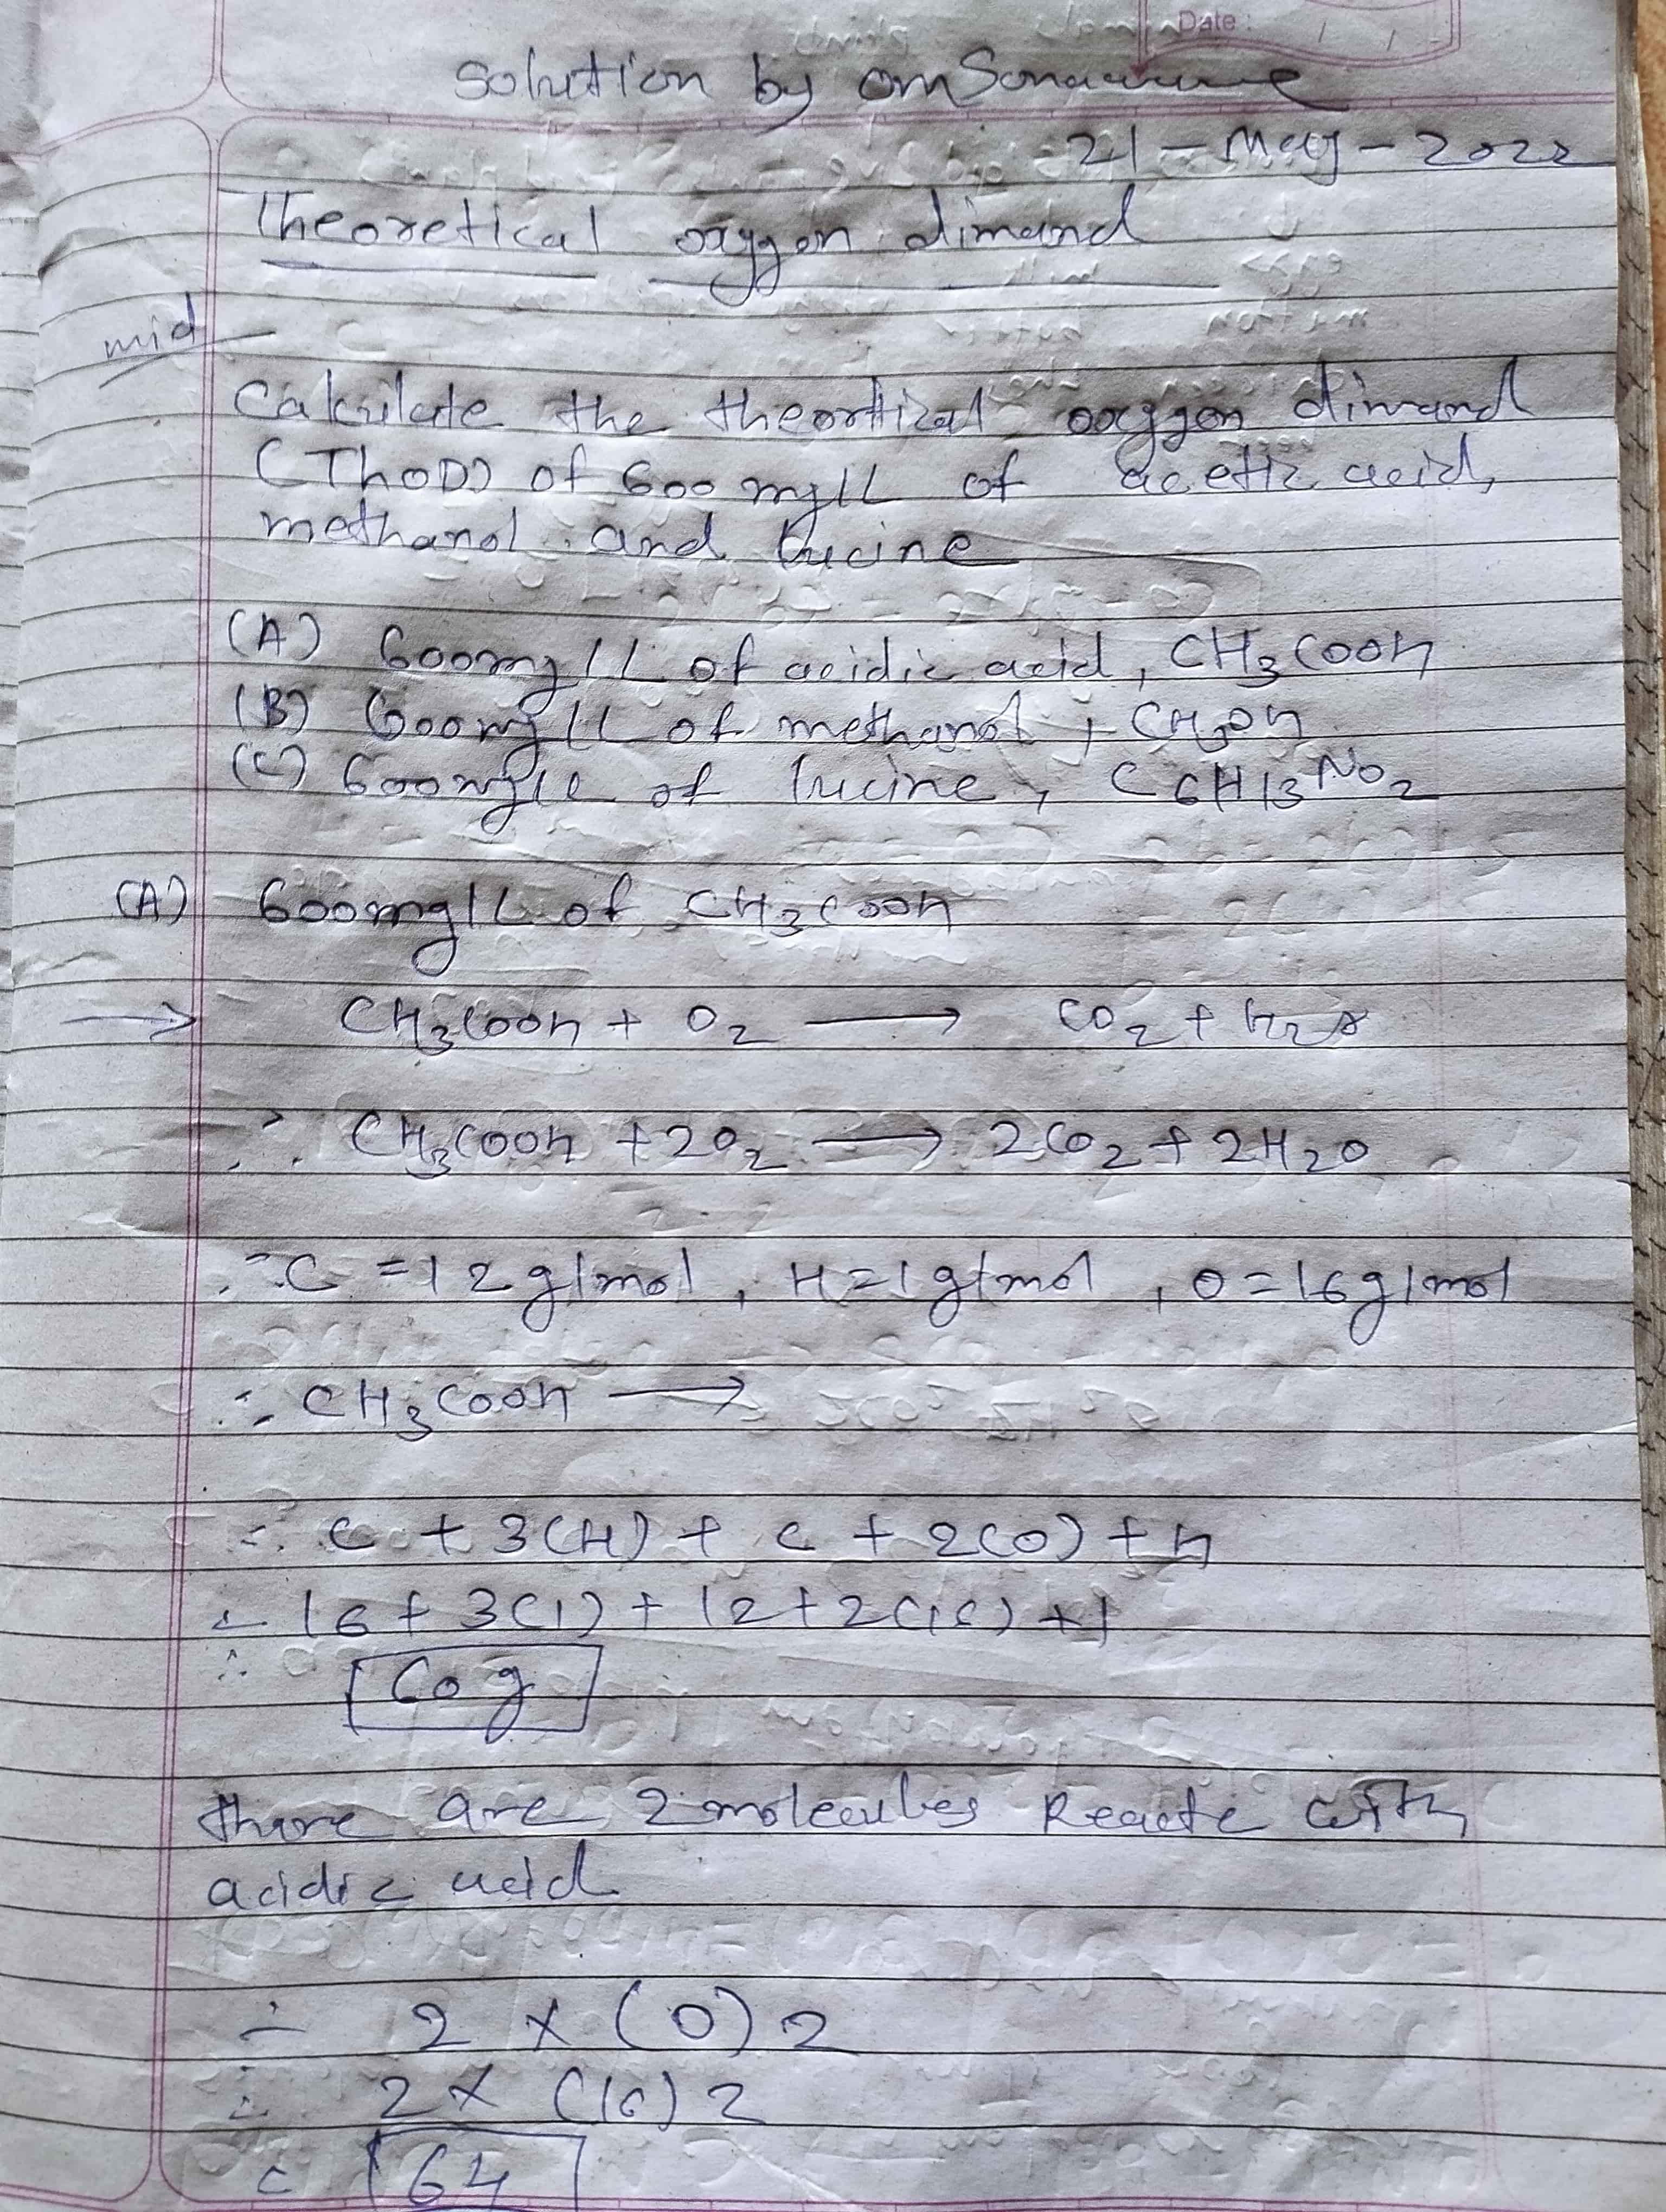 Date :
solution by om Sonawane
21 - May - 2022
Theoretical oxygen dimand
mid
Calculate the theortical oxygen dimand
(ThOD) of 600 mg/L of acetic acid,
methanol and lucine
(A) 600mg/L of acidic acid, CH3COOH
(B) 600mg/L of methanol, CH3OH
(C) 600mg/L of lucine, C6H13NO2
(A) 600mg/L of CH3COOH
→ CH3COOH + O2 → CO2 + H2O
∴ CH3COOH + 2O2 → 2CO2 + 2H2O
∴ C = 12 g/mol, H = 1 g/mol, O = 16 g/mol
∴ CH3COOH →
∴ C + 3(H) + C + 2(O) + H
∴ 16 + 3(1) + 12 + 2(16) + 1
∴ 60 g
there are 2 molecules Reacte with
acidic acid
∴ 2 × (O)2
∴ 2 × (16)2
= 64